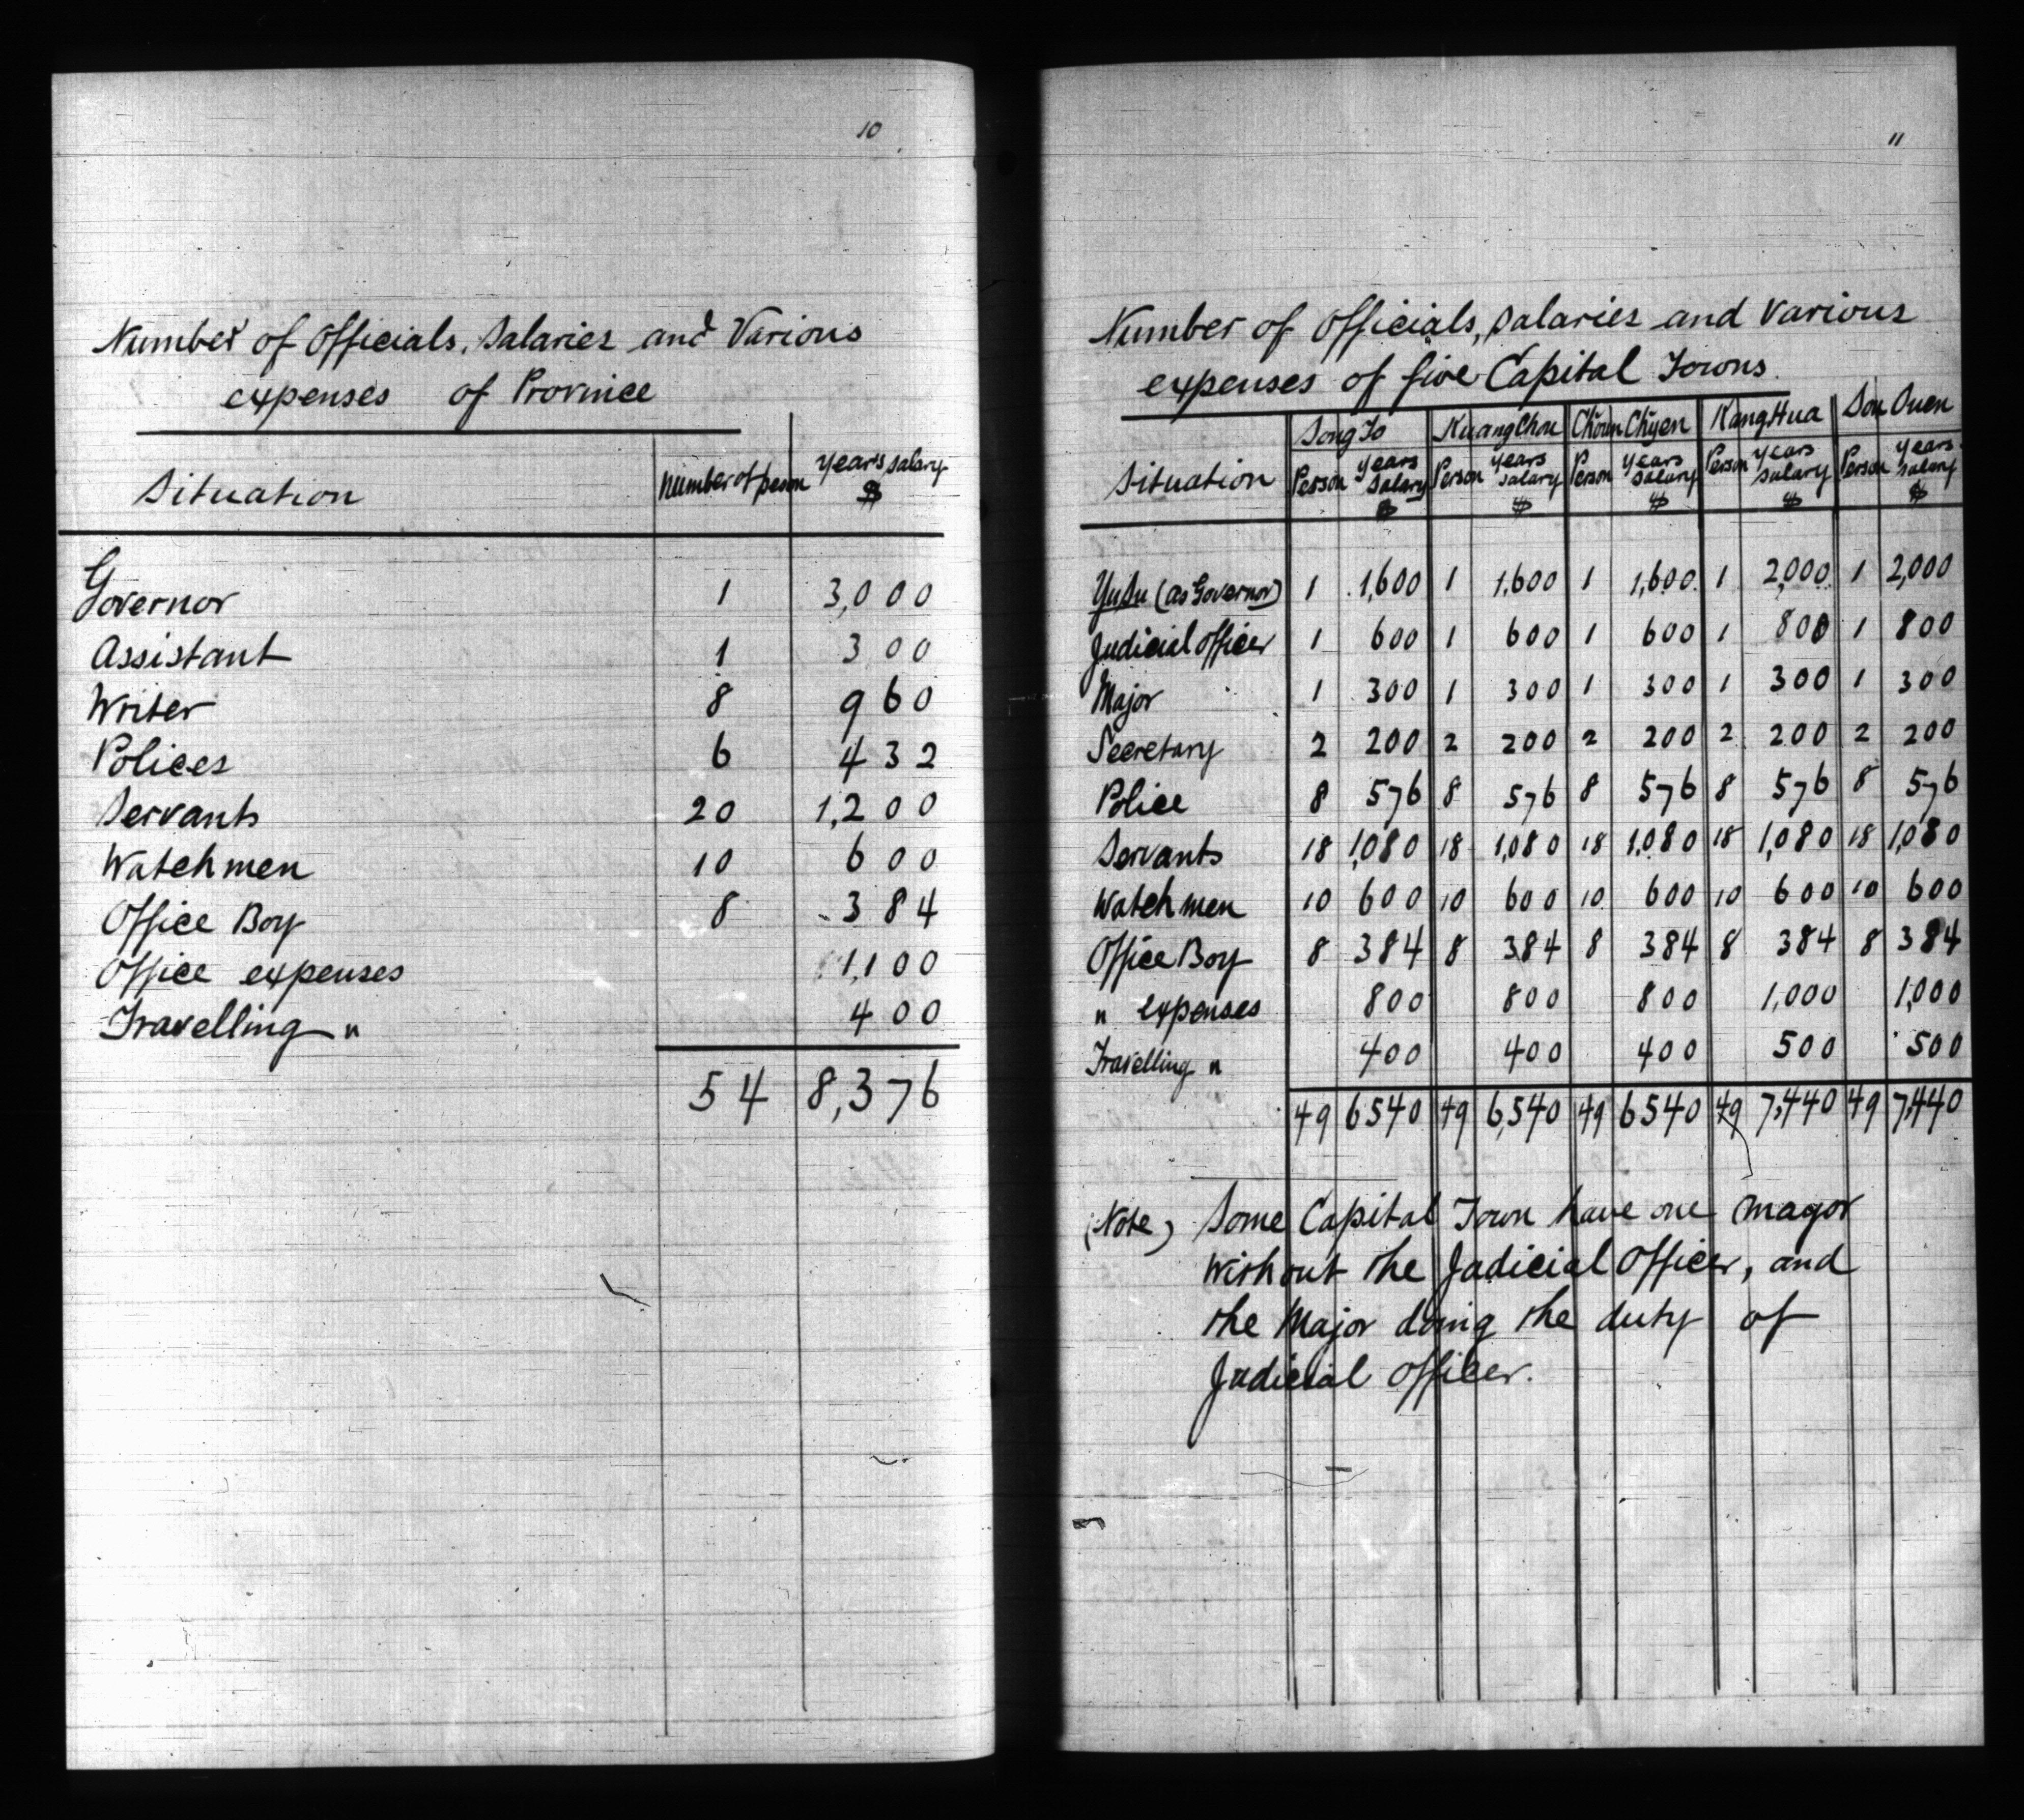 10
Number of Officials, Salaries and Various
expenses of Province
Situation Number of person Year's salary $
Governor 1 3,000
Assistant 1 300
Writer 8 960
Polices 6 432
Servants 20 1,200
Watchmen 10 600
Office Boy 8 384
Office expenses 1,100
Travelling " 400
54 8,376
11
Number of Officials, Salaries and Various
expenses of five Capital Towns
Song To Kuang Chou Choun Chyen Kang Hua Sou Ouen
Situation Person Years salary $ Person Years salary $ Person Years salary $ Person Years salary $ Person Years salary $
Yusu (as Governor) 1 1,600 1 1,600 1 1,600 1 2,000 1 2,000
Judicial Officer 1 600 1 600 1 600 1 800 1 800
Major 1 300 1 300 1 300 1 300 1 300
Secretary 2 200 2 200 2 200 2 200 2 200
Police 8 576 8 576 8 576 8 576 8 576
Servants 18 1,080 18 1,080 18 1,080 18 1,080 18 1,080
Watchmen 10 600 10 600 10 600 10 600 10 600
Office Boy 8 384 8 384 8 384 8 384 8 384
" expenses 800 800 800 1,000 1,000
Travelling " 400 400 400 500 500
49 6540 49 6,540 49 6540 49 7,440 49 7,440
(Note) Some Capital Town have one magor
without the Judicial Officer, and
the Major doing the duty of
Judicial Officer.